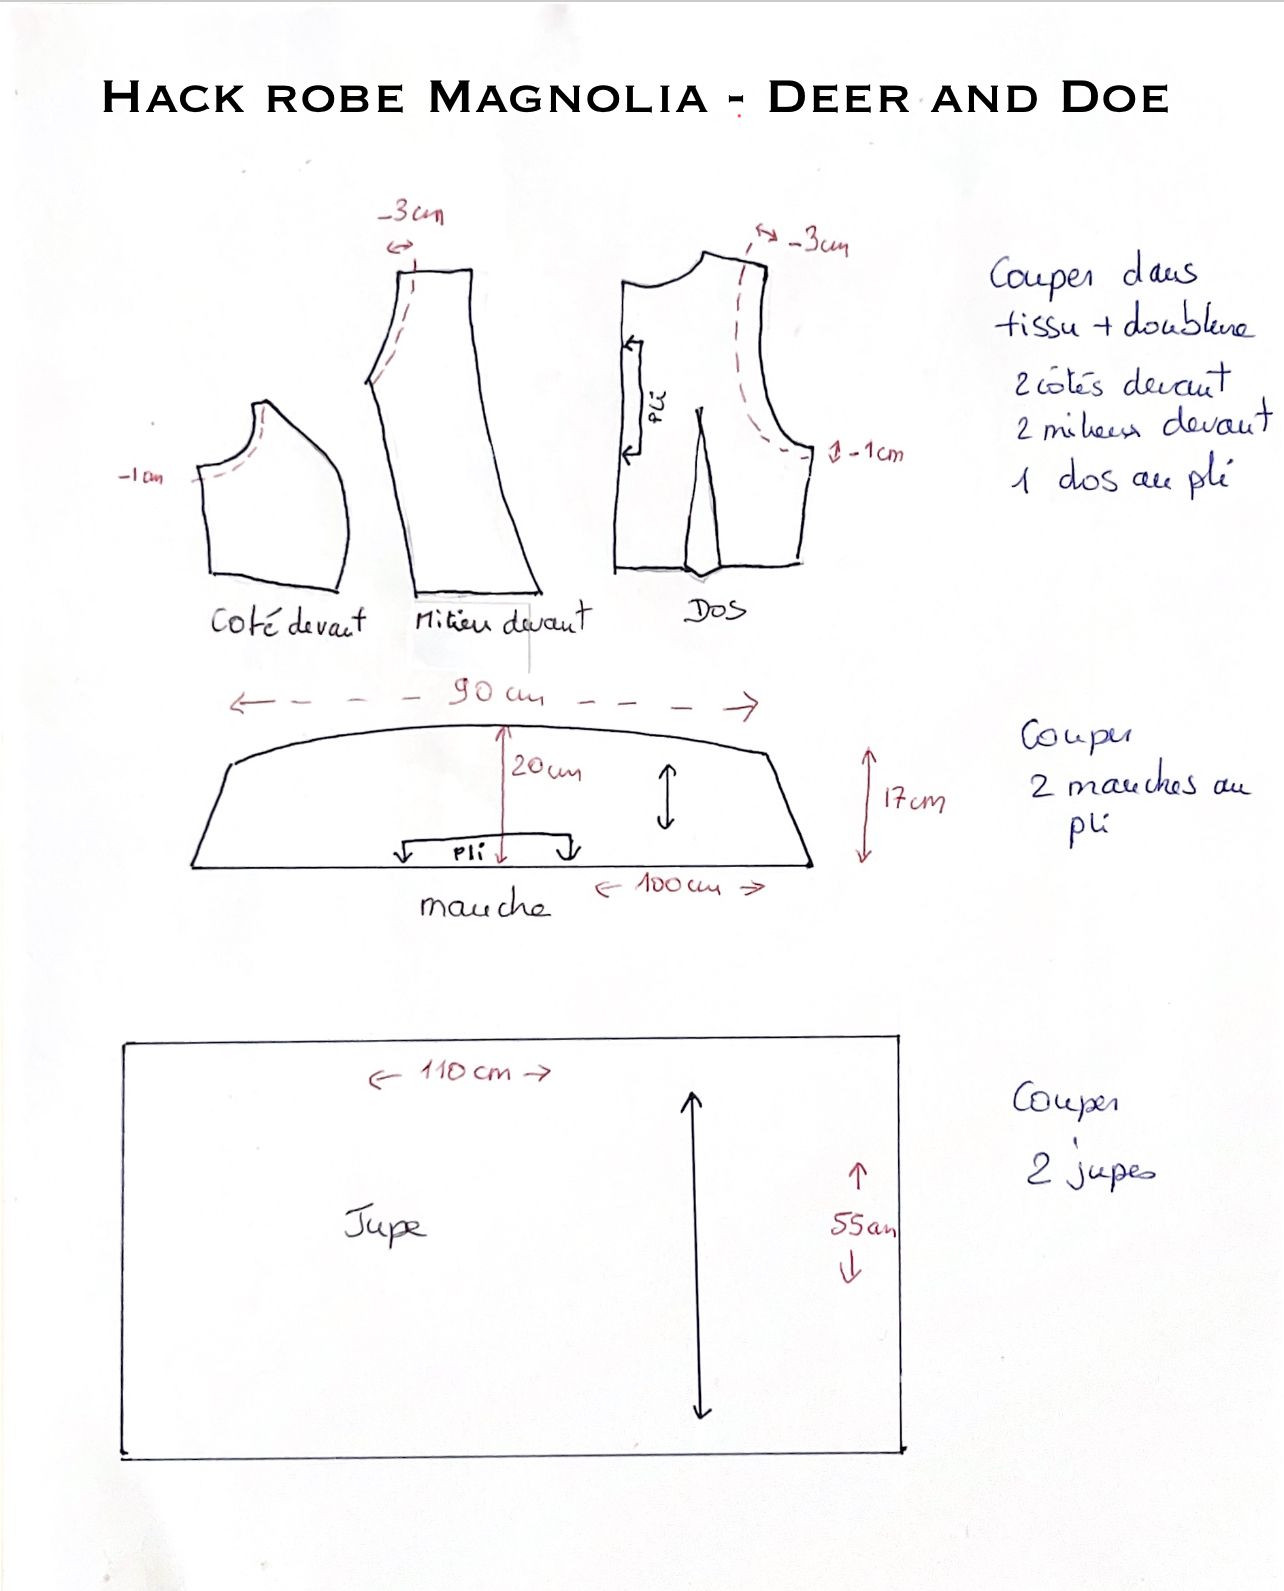 HACK ROBE MAGNOLIA - DEER AND DOE
-3cm
-3cm
-1cm
Pli
-1cm
Coté devant
Milieu devant
Dos
Couper dans
tissu + doublure
2 côtés devant
2 milieux devant
1 dos au pli
90 cm
20cm
17cm
Pli
100cm
manche
Couper
2 manches au
pli
110 cm
Jupe
55cm
Couper
2 jupes